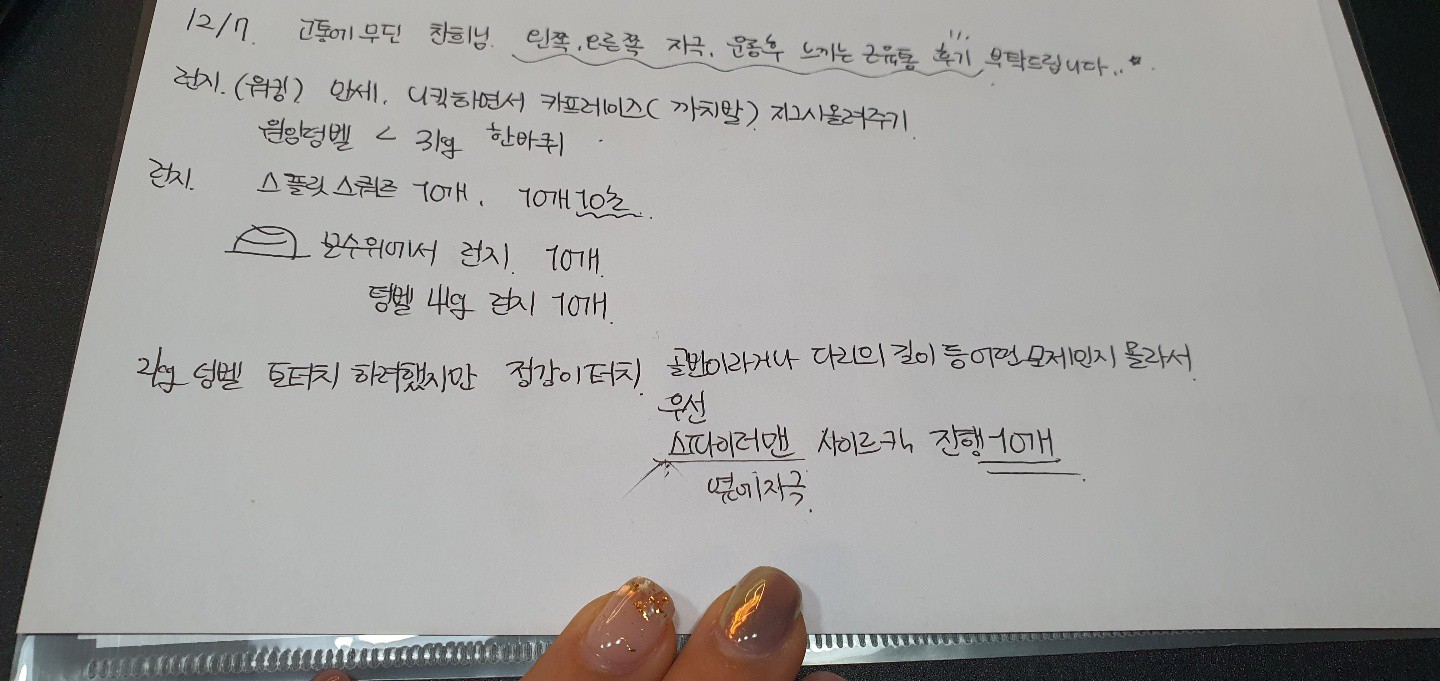 12/7. 고통에 무딘 찬희님. 왼쪽, 오른쪽 자극, 운동후 느끼는 근육통 후기 부탁드립니다..*.
런지. (워킹) 만세, 니킥하면서 카프레이즈(까치발) 지그시올려주기.
덤벨 < 3kg 한바퀴.
런지. 스플릿스쿼트 10개, 10개 10초.
보수위에서 런지 10개.
덤벨 4kg 런지 10개.
2kg 덤벨 토터치 하려했지만 정강이터치. 골반이라거나 다리의 길이 등 어떤 문제인지 몰라서
우선
스파이더맨 진행 10개.
옆에자극.